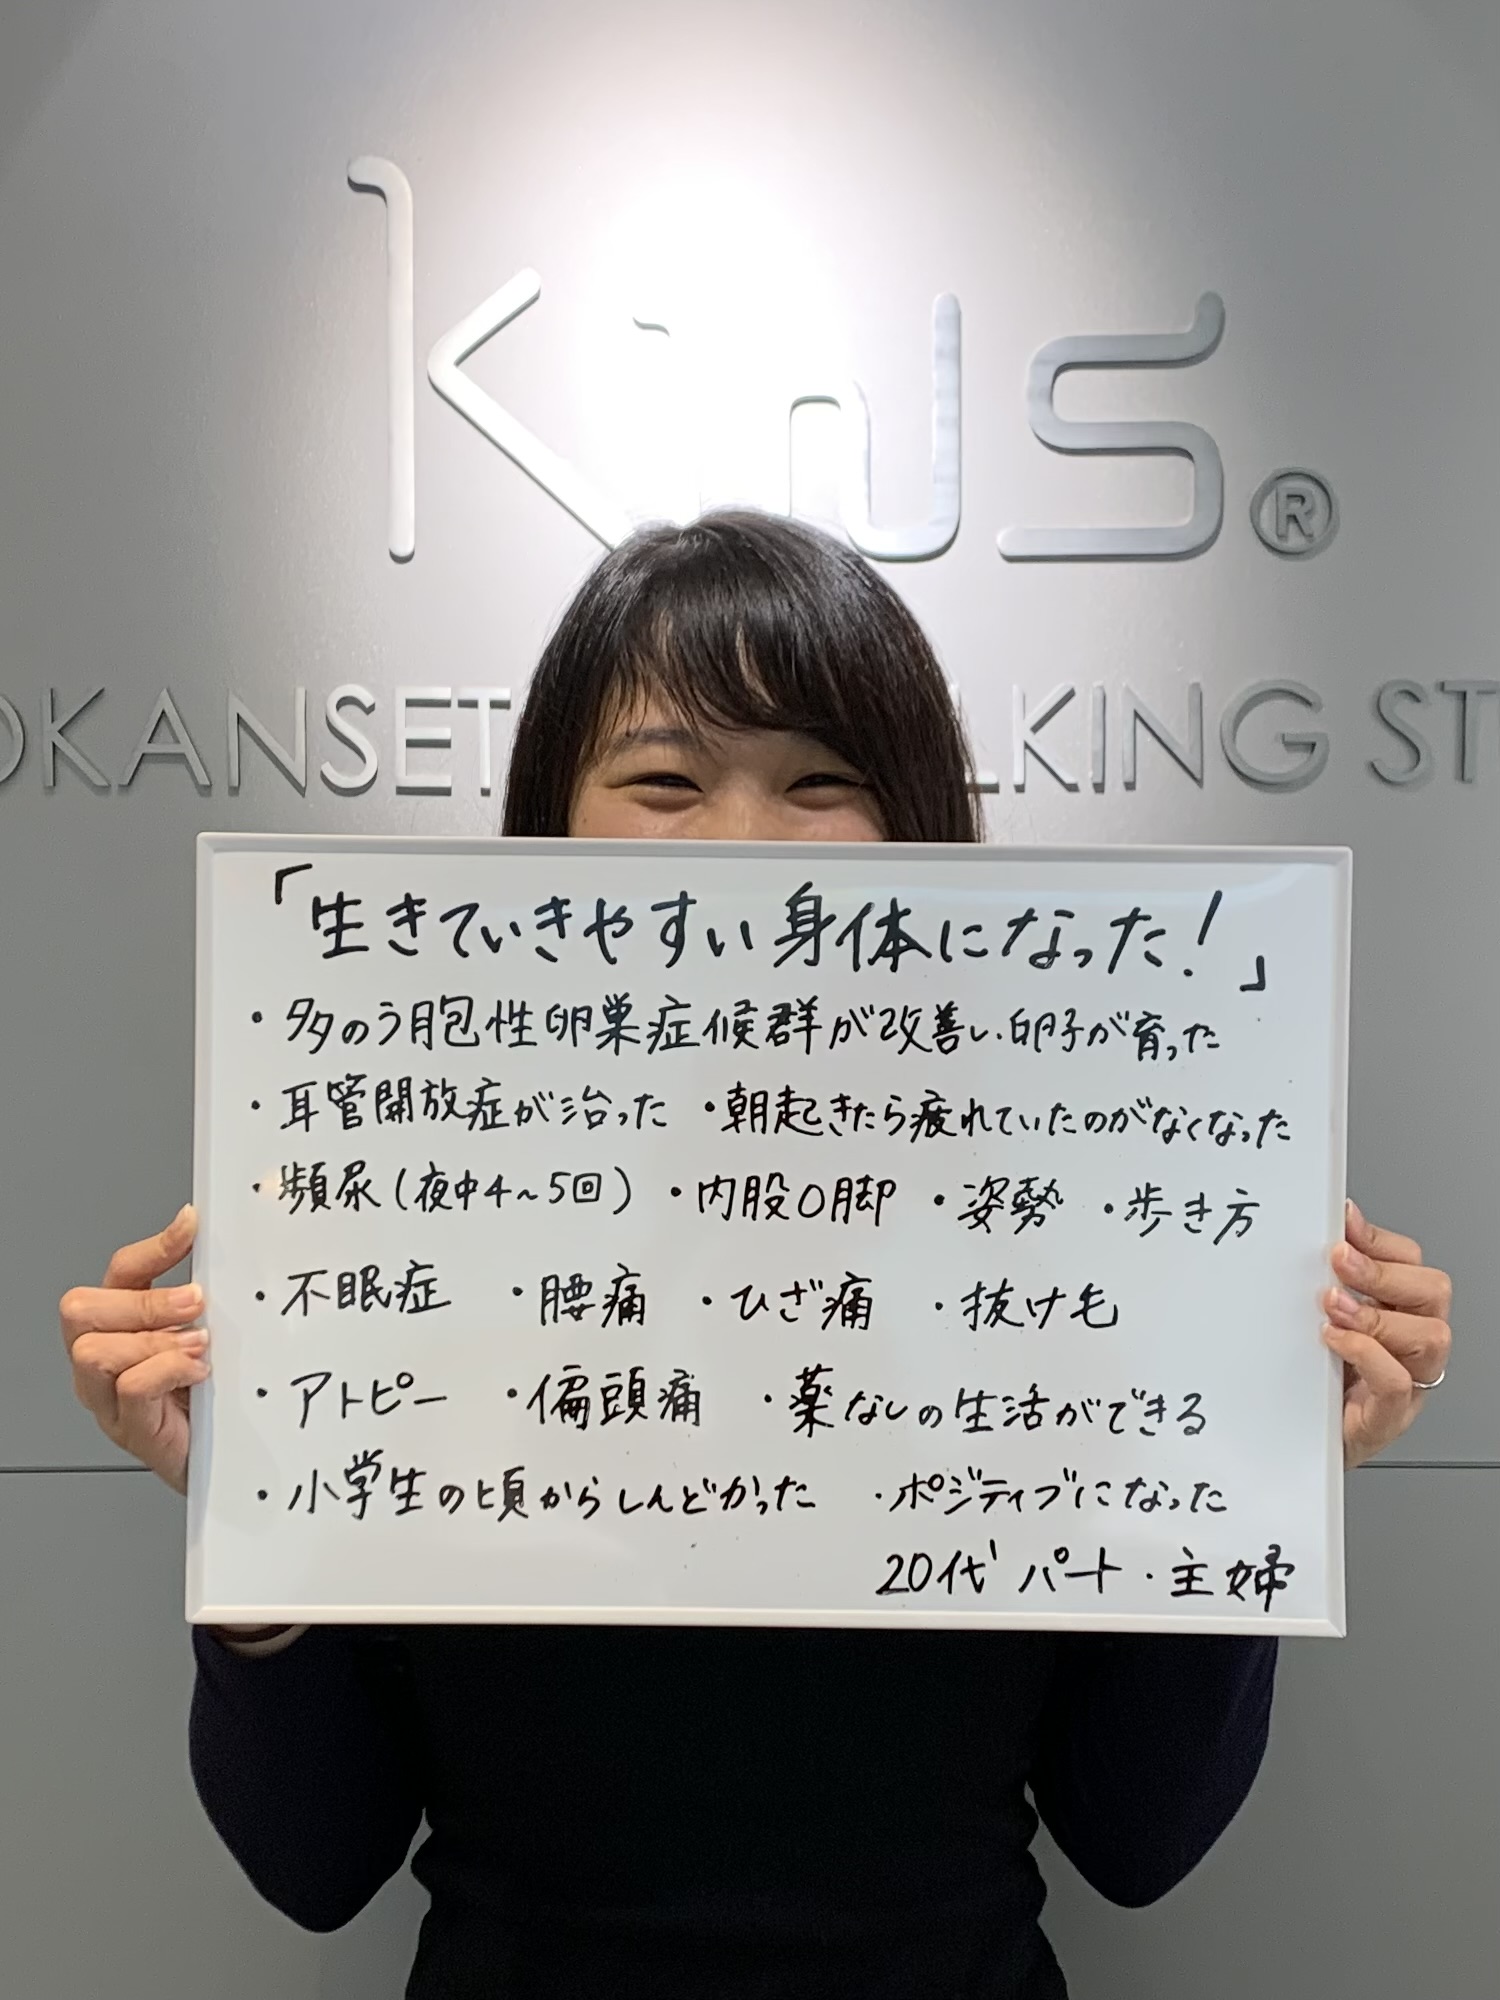 Kinus®
OKANSET LKING ST
「生きていきやすい身体になった！」
・多のう胞性卵巣症候群が改善し、卵子が育った
・耳管開放症が治った ・朝起きたら疲れていたのがなくなった
・頻尿(夜中4~5回) ・内股O脚 ・姿勢 ・歩き方
・不眠症 ・腰痛 ・ひざ痛 ・抜け毛
・アトピー ・偏頭痛 ・薬なしの生活ができる
・小学生の頃からしんどかった ・ポジティブになった
20代 パート・主婦